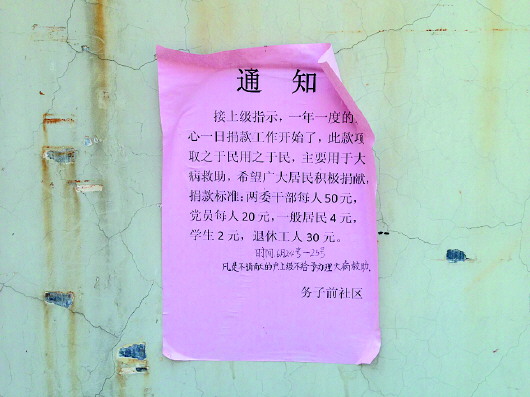 通 知
接上级指示，一年一度的
心一日捐款工作开始了，此款项
取之于民用之于民，主要用于大
病救助。希望广大居民积极捐献，
捐款标准：两委干部每人50元，
党员每人20元，一般居民4元，
学生2元，退休工人30元。
时间
凡是不捐献的户上级不给予办理大病救助.
务子前社区